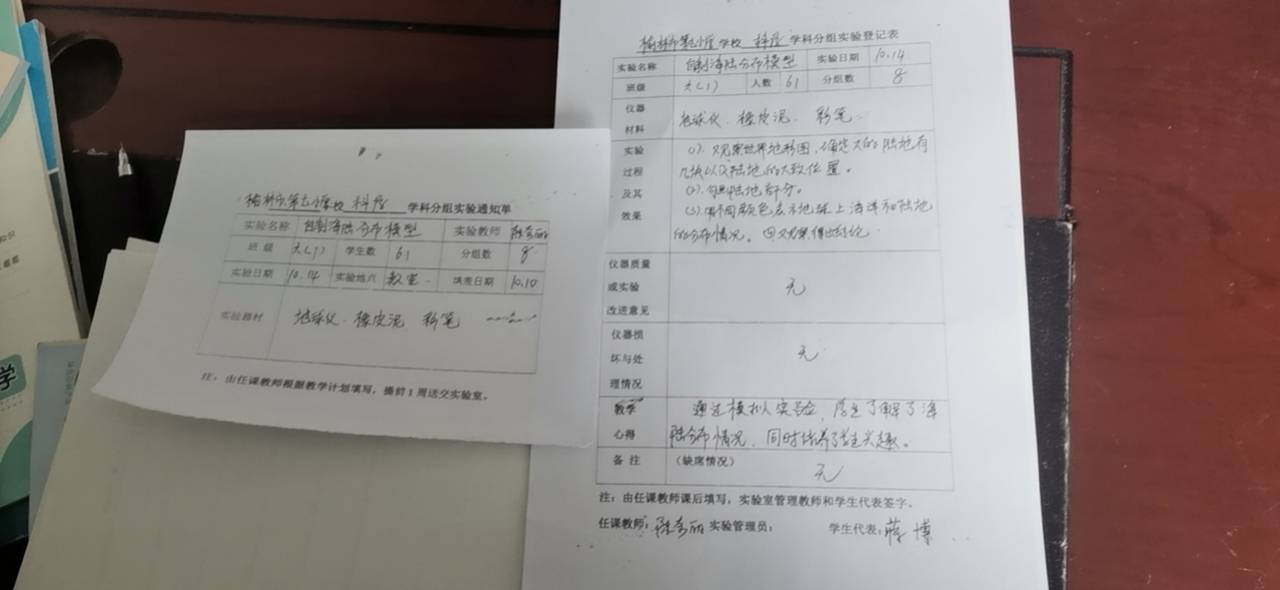 榆林市第七小学校 科学 学科分组实验通知单
实验名称 自制海陆分布模型 实验教师 陈秀丽
班 级 六(1) 学生数 61 分组数 8
实验日期 10.14 实验地点 教室 填表日期 10.10
实验器材 地球仪、橡皮泥 彩笔
注:由任课教师根据教学计划填写,提前1周送交实验室。
学校 科学 学科分组实验登记表
实验名称 自制海陆分布模型 实验日期 10.14
班级 六(1) 人数 61 分组数 8
仪器
材料
地球仪、橡皮泥、彩笔
实验
过程
及其
效果
(1)、观察世界地形图,确定大的陆地有
几块以及陆地的大致位置。
(2)、勾画陆地部分。
(3)、用不同颜色表示地球上海洋和陆地
的分布情况。 观察得出结论
仪器质量
或实验
改进意见
无
仪器损
坏与处
理情况
无
教学
心得
通过模拟实验,学生了解了海
陆分布情况,同时培养了学生兴趣。
备 注 (缺席情况) 无
注:由任课教师课后填写,实验室管理教师和学生代表签字。
任课教师:陈秀丽 实验管理员: 学生代表:薛博